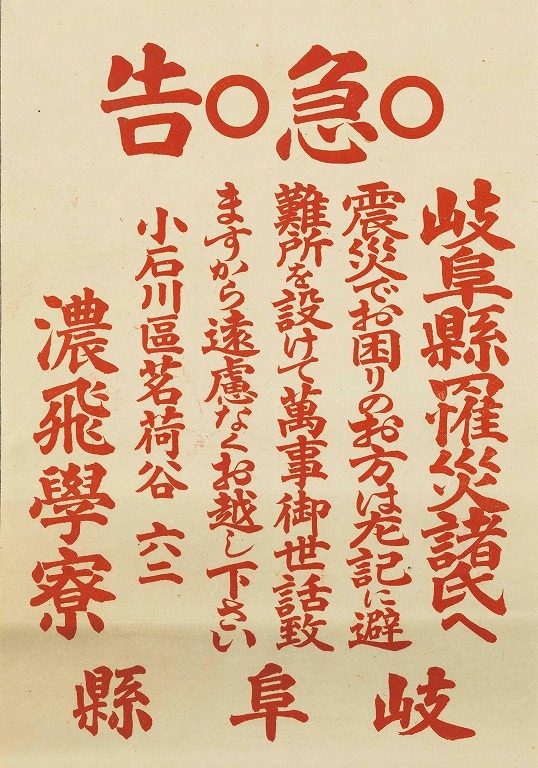 ○急○告
岐阜縣罹災諸氏へ
震災でお困りのお方は左記に避
難所を設けて萬事御世話致
ますから遠慮なくお越し下さい
小石川區茗荷谷 六二
濃飛學寮
岐阜縣